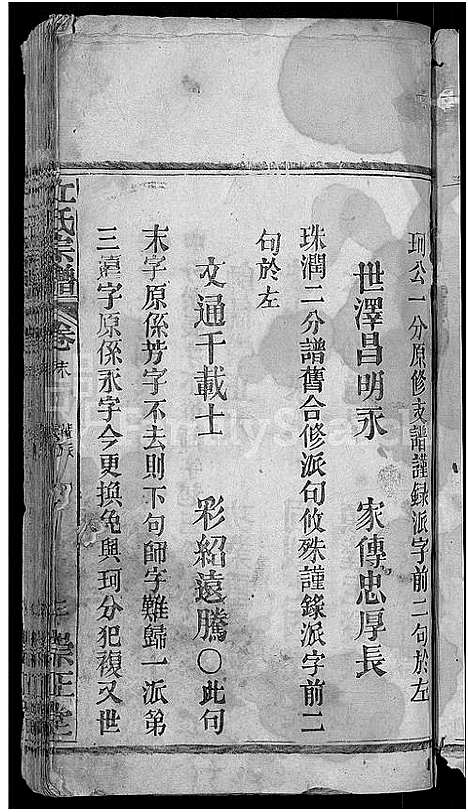 珂公一分原修支譜謹録派字前二句於左
世澤昌明永　家傳忠厚長
珠潤二分譜舊合修派句攸殊謹錄派字前二
句於左
文通千載士　彩紹遠騰〇此句
末字原係芳字不去則下句師字難歸一派第
三遠字原係永字今更換免與珂分犯複又世
氏宗譜 卷末
三 崇正堂
FamilySearch